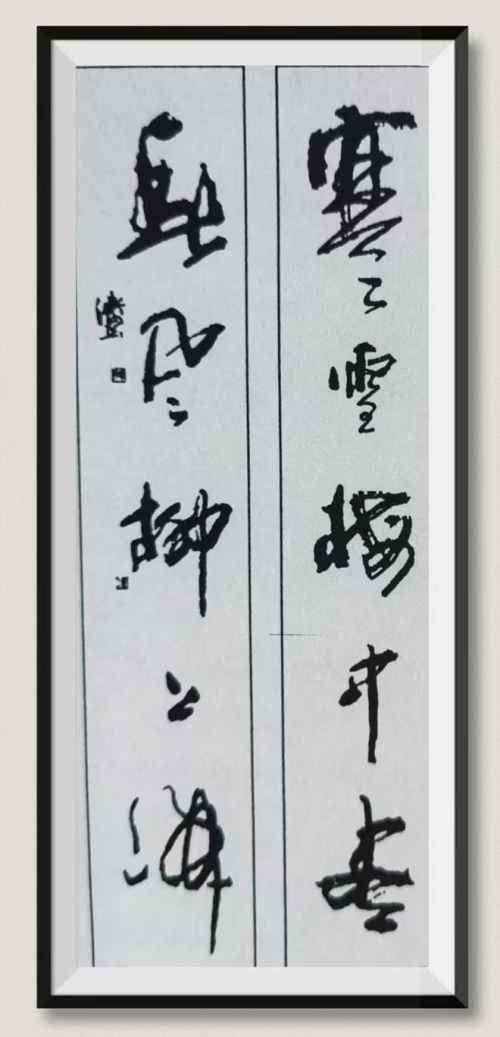 寒雪梅中盡
春風柳上歸